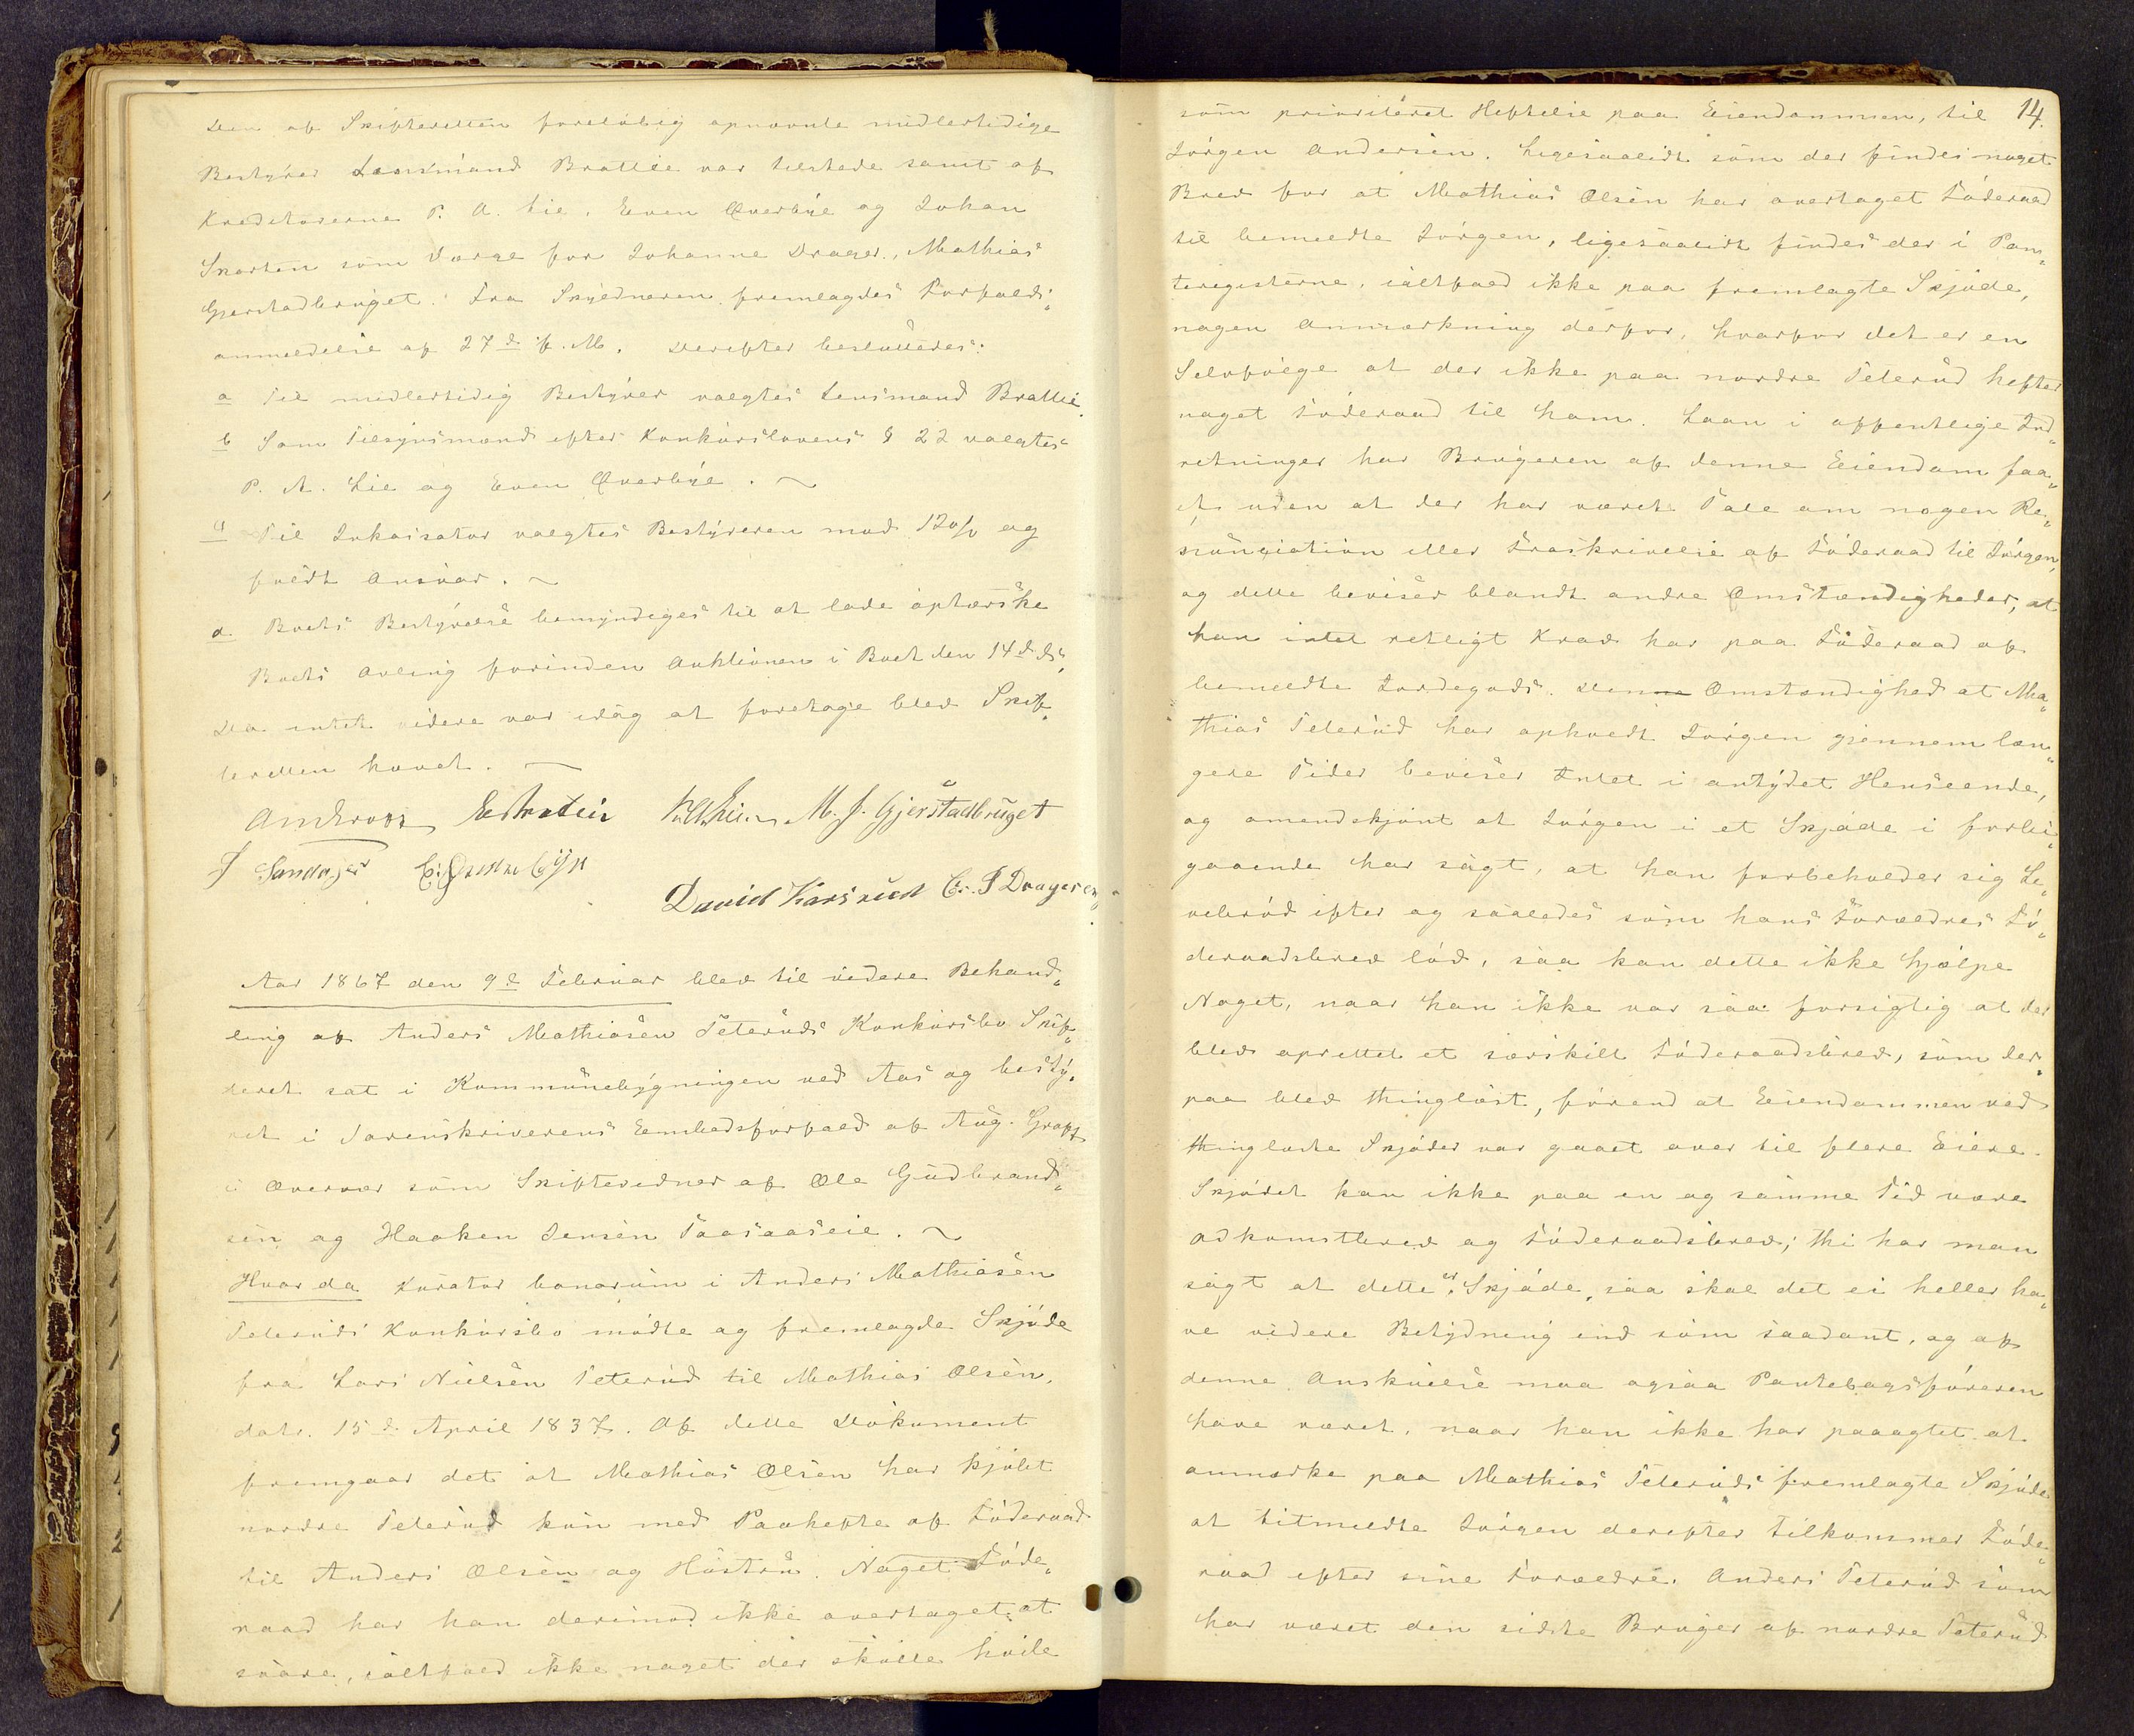 Den af Skifteretten foreløbig opnævnte midlertidige
Bestyrer Lensmand Brattlie var tilstede samt af
Kreditorerne P. A. Lie, Even Qverbye og Johan
Skarten som Værge for Johanne Drager, Mathias
Gjerstadbruget. Fra Skyldneren fremlagdes Forfalds„
anmeldelse af 27d f. M. Derefter besluttedes:
a Til midlertidig Bestyrer valgtes Lensmand Brattlie.
b Som Tilsynsmænd efter Konkurslovens § 22 valgtes
P. A. Lie og Even Qverbye.
c Til Inkassator valgtes Bestyreren mod og
fuldt Ansvar.
d. Boets Bestyrelse bemyndiges til at lade optærske
Boets Avling forinden Auktionen i Boet den 14d ds.
Da intet videre var idag at foretage blev Skif„
teretten hævet.
M. J. Gjerstadbruget
David Karsrud
Aar 1867 den 9d Februar blev til videre Behand„
ling af Anders Mathiasen Teteruds Konkursbo Skif„
teret sat i Kommunebygningen ved Aas og besty„
ret i Sorenskriverens Embedsforfald af Aug. Gropp
i Overvær som Skiftevidner af Ole Gudbrand„
sen og Haaken Jensen Taasaaseie.
Hvor da Kurator bonorum i Anders Mathiasen
Teteruds Konkursbo mødte og fremlagde Skjøde
fra Lars Nielsen Teterud til Mathias Olsen,
dat. 15d April 1837. Af dette Dokument
fremgaar det at Mathias Olsen har kjøbt
nordre Teterud kun med Paahefte af Føderaad
til Anders Olsen og Hustru. Noget Føde„
raad har han derimod ikke overtaget at
svare, ialtfald ikke noget der skulle hvile
14.
som prioriteret Heftelse paa Eiendommen, til
Jørgen Andersen. Ligesaalidt som der findes noget
Brev for at Mathias Olsen har overtaget Føderaad
til bemeldte Jørgen, ligesaalidt findes der i Pan„
teregisterne, ialtfald ikke paa fremlagte Skjøde,
nogen Anmærkning derfor, hvorfor det er en
Selvfølge at der ikke paa nordre Teterud hefter
noget Føderaad til ham. Laan i offentlige Ind„
retninger har Brugeren af denne Eiendom faa„
et, uden at der har været Tale om nogen Re„
nunciation eller Fraskrivelse af Føderaad til Jørgen,
og dette beviser blandt andre Omstændigheder, at
han intet retligt Krav har paa Føderaad af
bemeldte Jordegods. Denne Omstændighed at Ma„
thias Teterud har opholdt Jørgen gjennem læn„
gere Tider beviser Intet i antydet Henseende,
og omendskjønt at Jørgen i et Skjøde i forbi„
gaaende har sagt, at han forbeholder sig Le„
vebrød efter og saaledes som hans Forældres Fø„
deraadsbrev lød, saa kan dette ikke hjælpe
Noget, naar han ikke var saa forsigtig at der
blev oprettet et særskilt Føderaadsbrev, som der„
paa blev thinglæst, førend at Eiendommen ved
thinglæste Skjøder var gaaet over til flere Eiere.
Skjødet kan ikke paa en og samme Tid være
Adkomstbrev og Føderaadsbrev; thi har man
sagt at dette er Skjøde, saa skal det ei heller ha„
ve videre Betydning end som saadant, og af
denne Anskuelse maa ogsaa Pantebogsføreren
have været, naar han ikke har paaagtet at
anmærke paa Mathias Teteruds fremlagte Skjøde
at titmeldte Jørgen derefter tilkommer Føde„
raad efter sine Forældre. Anders Teterud som
har været den sidste Bruger af nordre Teterud